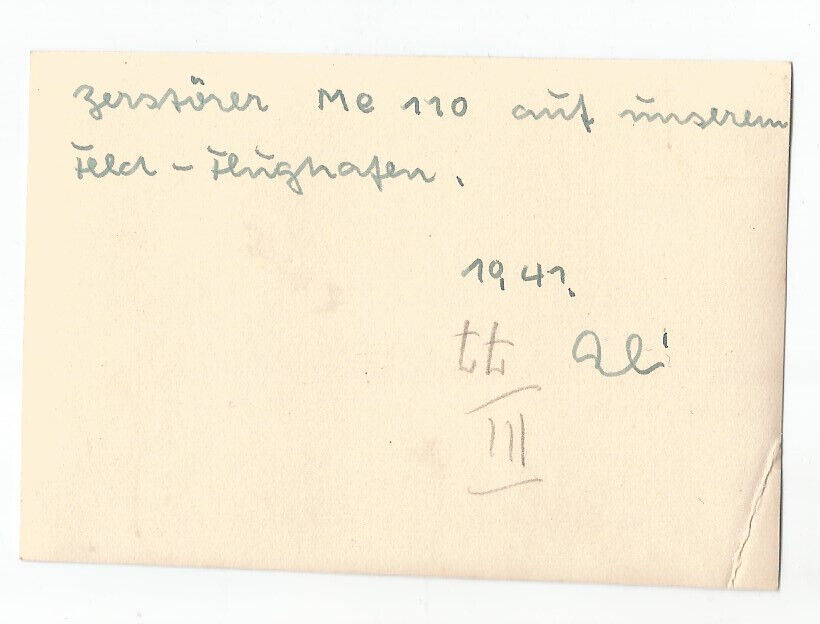 Zerstörer Me 110 auf unserem
Feld - Flughafen.
1941.
Ali
III